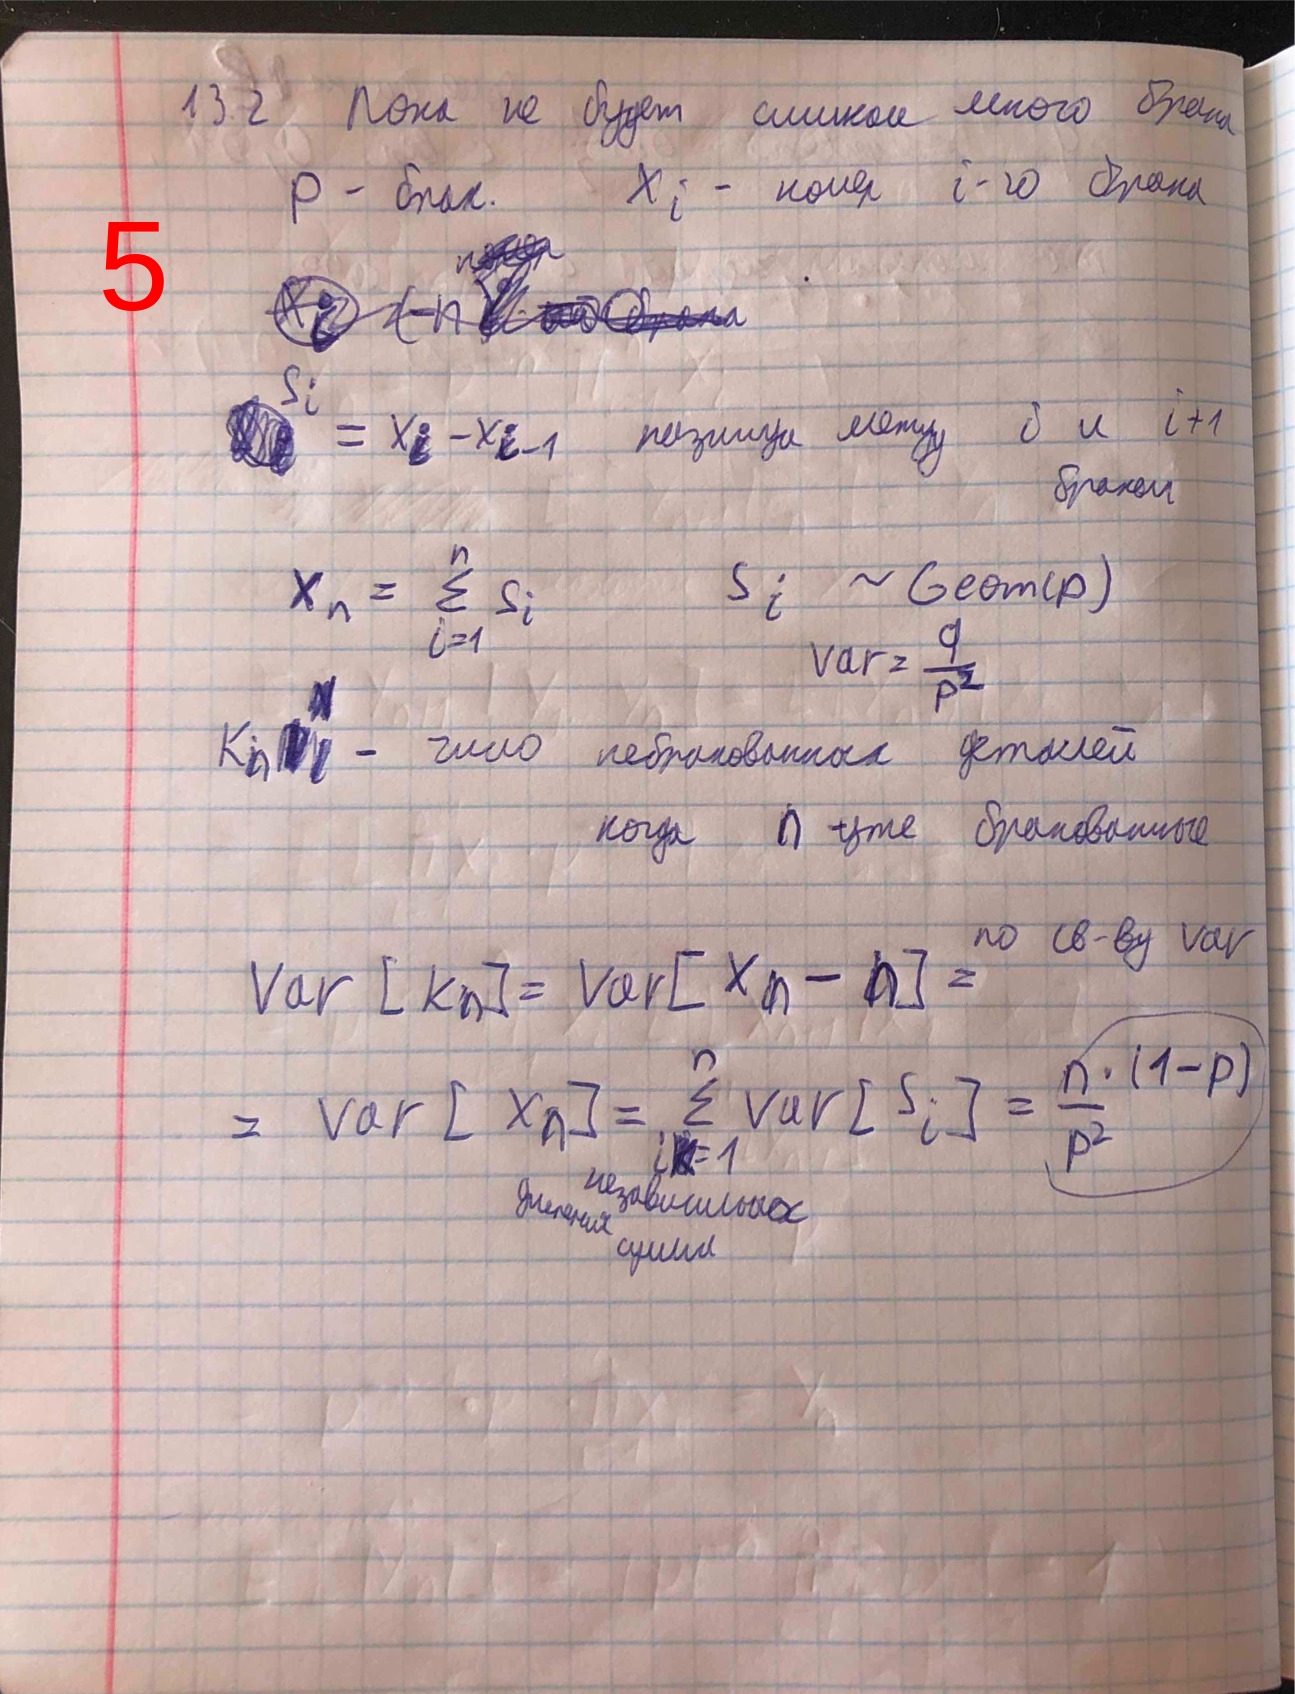 13.2 Пока не будет слишком много брака
p - брак. Xi - номер i-го брака
5
Si
= Xi - Xi-1 разница между i и i+1
браком
Xn = Σ Si Si ~ Geom(p)
n
i=1
Var = q/p²
Kn - число небракованных деталей
когда n уже бракованные
Var [Kn] = Var[Xn - n] = по св-ву Var
= Var [Xn] = Σ Var [Si] = n·(1-p)/p²
n
i=1
независимых
сумма